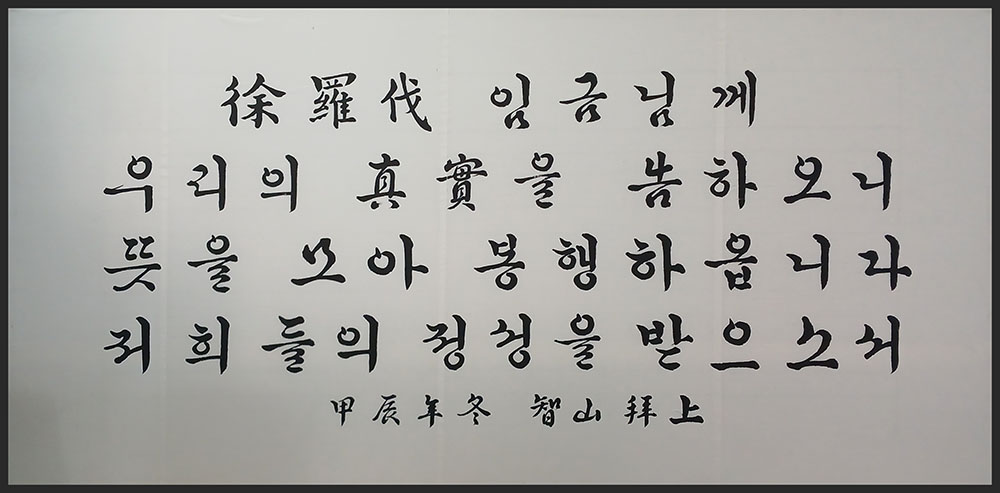 徐羅伐 임금님께
우리의 真實을 告하오니
뜻을 모아 봉행하옵니다
저희들의 정성을 받으소서
甲辰年冬 智山拜上